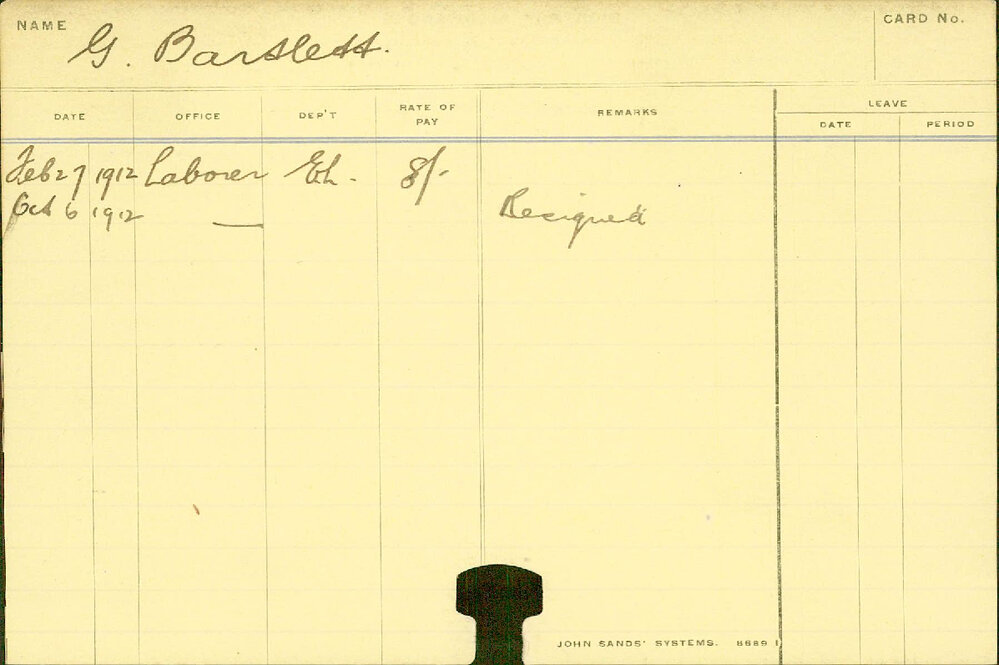 NAME G. Bartlett. CARD No.
DATE OFFICE DEP'T RATE OF PAY REMARKS LEAVE
DATE PERIOD
Feb 27 1912 Laborer EL. 8/-
Oct 6 1912 — Resigned
JOHN SANDS' SYSTEMS. 8689